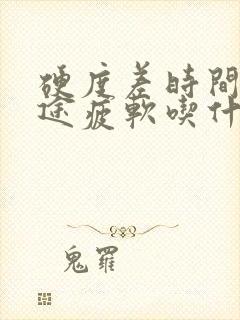 硬度差時間
途疲軟喫什
鬼羅